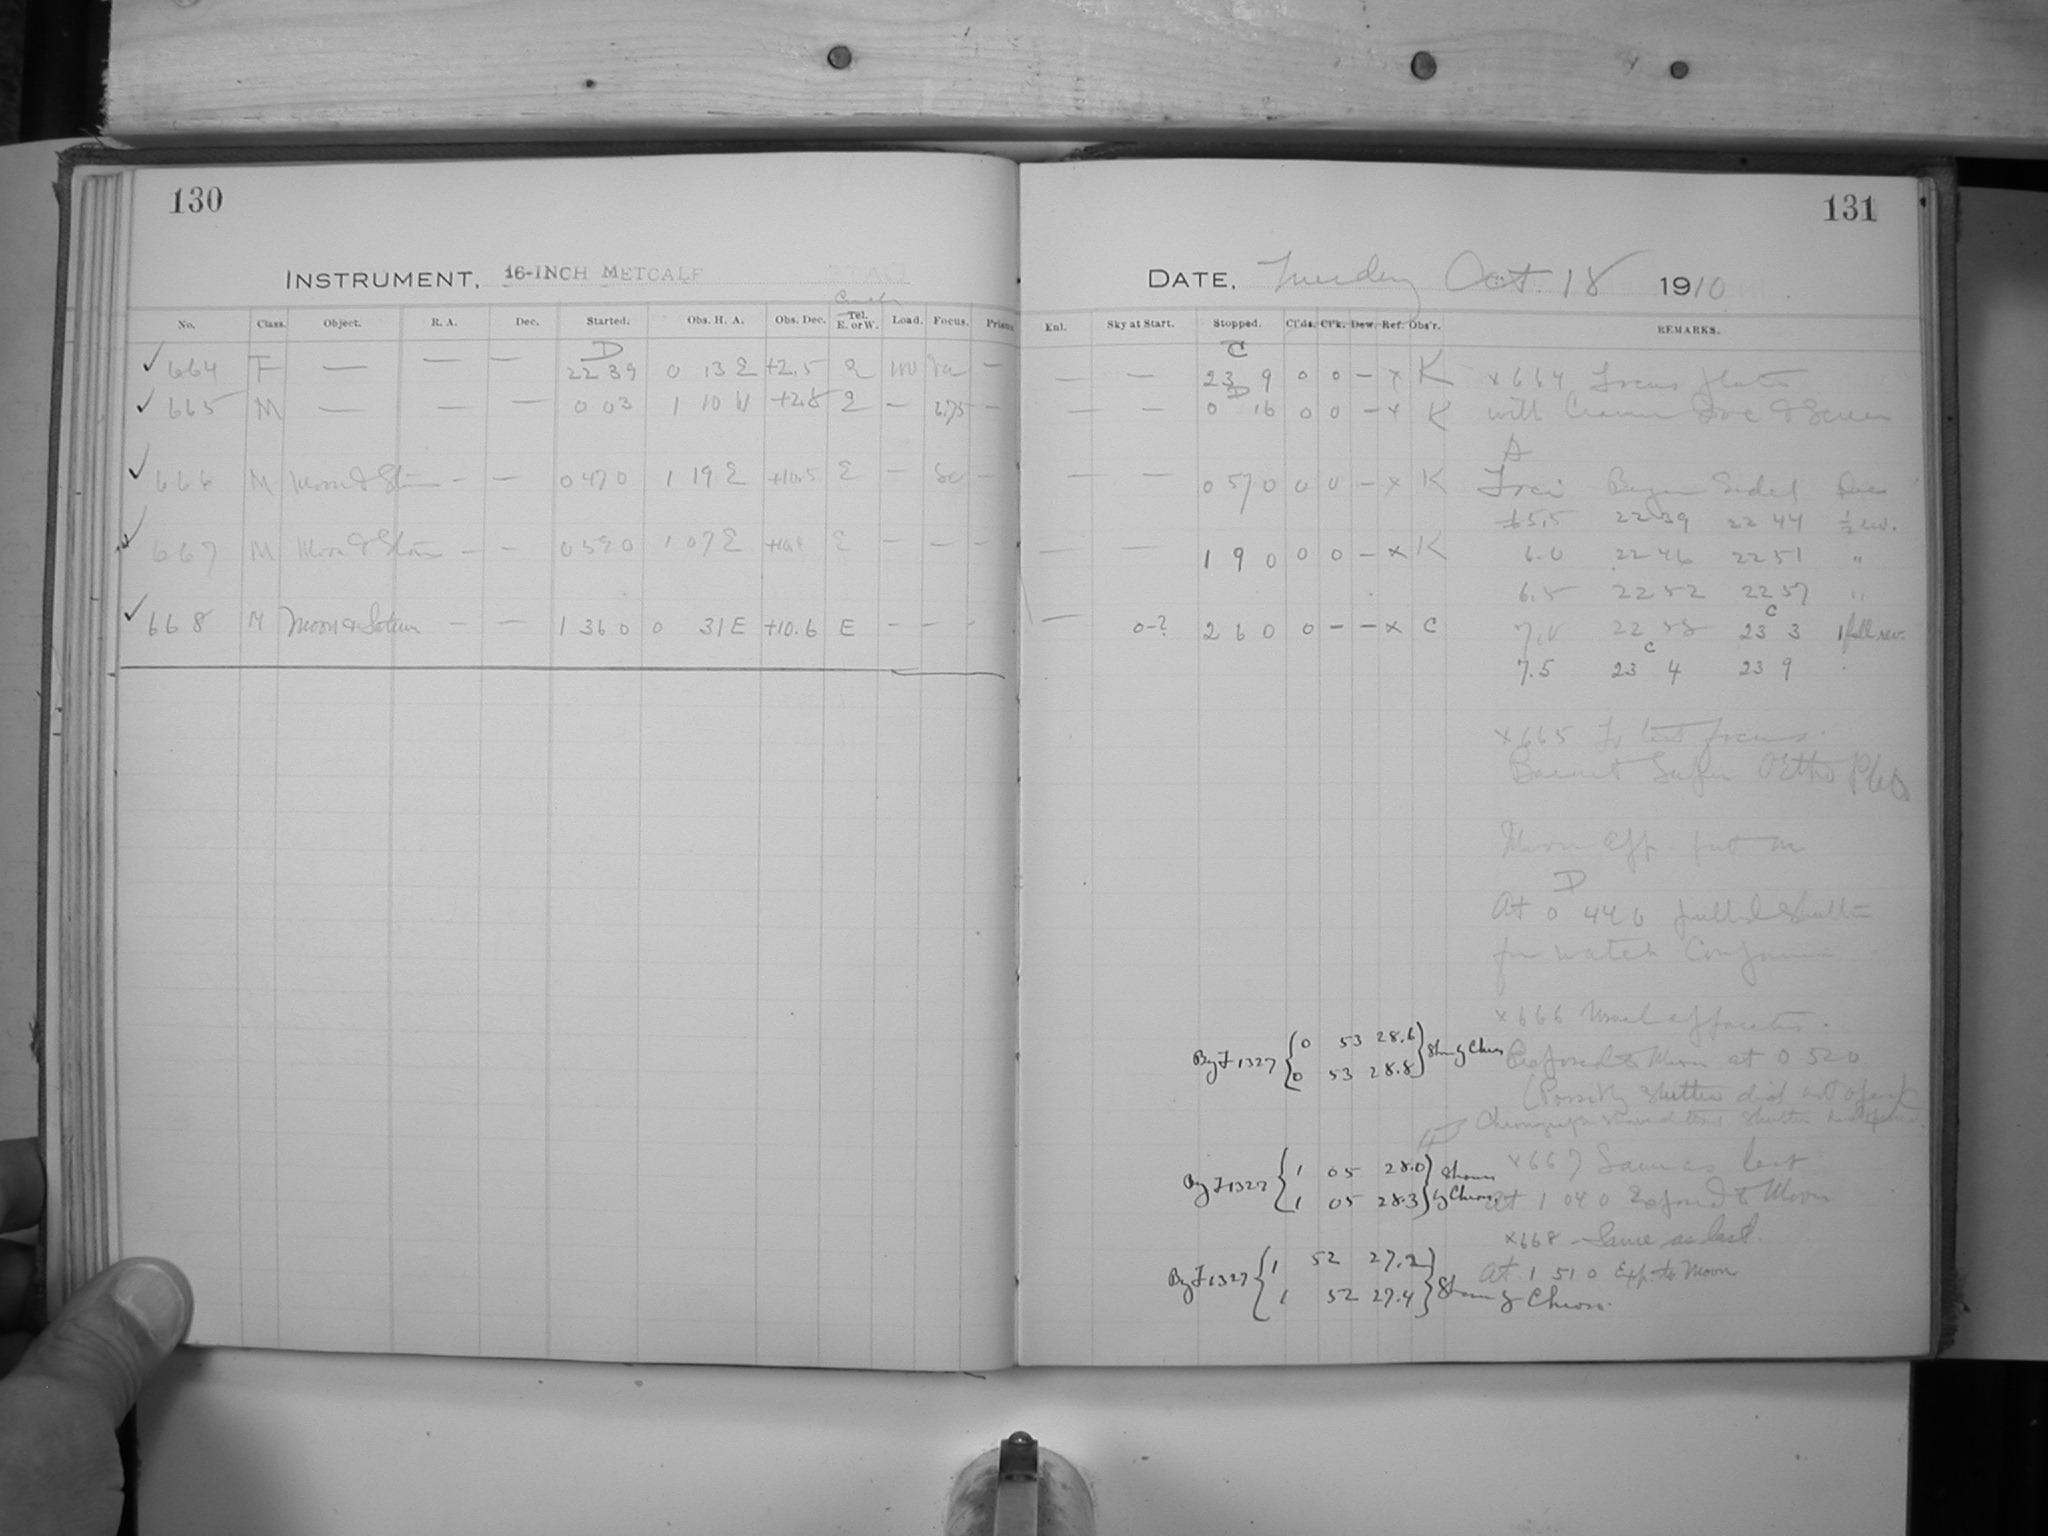 130
INSTRUMENT, 16-INCH METCALF
No. Class. Object. R. A. Dec. Started. Obs. H. A. Obs. Dec. Tel. E. or W. Load. Focus. Prism
✓ 664 F — — — D 22 39 0 13 E +2.5 E —
✓ 665 M — — — 0 03 1 10 W +2.8 E — 6.75 —
✓ 666 M Moon & Stars — — 0 47 0 1 19 E +10.5 E — —
✓ 667 M Moon & Stars — — 0 59 0 1 07 E E — — —
✓ 668 M Moon & — — 1 36 0 0 31 E +10.6 E — — —
131
DATE, Tuesday Oct. 18 1910
Enl. Sky at Start. Stopped. Cl'ds. Cl'k. Dew. Ref. Obs'r. REMARKS.
— — C 23 9 0 0 – x K x664 Focus plate
— — D 0 16 0 0 – x K with Cramer & Screen
— — 0 57 0 0 0 – x K
Foci Began Ended
65.5 22 39 22 44 ½ rev.
— — 1 9 0 0 0 – x K 6.0 22 46 22 51 "
6.5 22 52 22 57 "
— 0-? 2 6 0 0 – – x C 7.0 22 58 23 C 3 1 full rev.
7.5 23 C 4 23 9
x665 To test focus.
Ortho Plate
Moon app. put on
At D 0 44 0 pulled shutter
for watch
x666 Usual apparatus.
By F 1327 { 0 53 28.6
0 53 28.8 } Shown by Chron.
Exposed to Moon at 0 52 0
(Possibly shutter did not open)
Chronograph showed that shutter
x667 Same as last
By F 1327 { 1 05 28.0
1 05 28.3 } Shown by Chron.
At 1 04 0 Exposed to Moon
x668 – Same as last.
By F 1327 { 1 52 27.2
1 52 27.4 } Shown by Chron.
At 1 51 0 Exp. to Moon